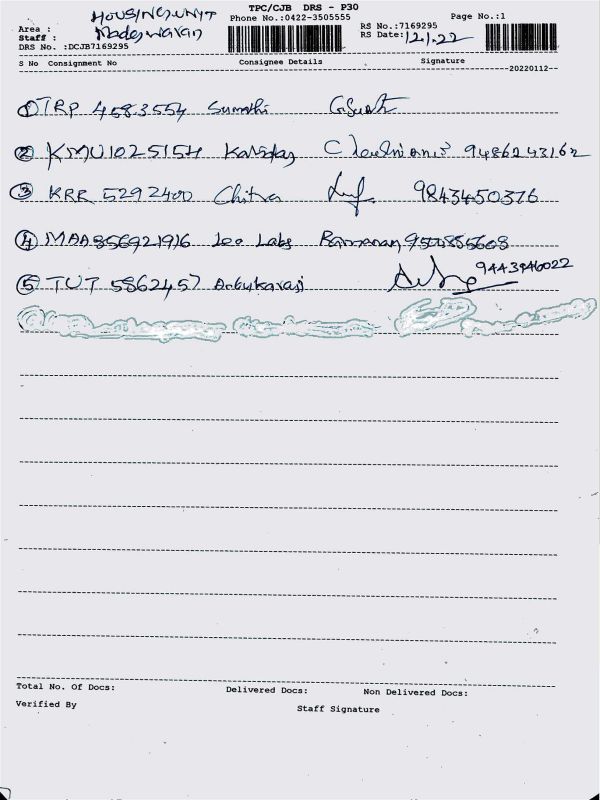 TPC/CJB DRS - P30
HOUSING UNIT
Phone No.:0422-3505555 Page No.:1
Area :
Staff : Madeswaran
RS No.:7169295
RS Date: 12.1.22
DRS No. :DCJB7169295
S No Consignment No Consignee Details Signature
20220112
① TRP 4583554 Sumathi
② KMU1025154 9486243162
③ KRR 5292400 Chitra 9843450376
④ MAA856921916 Leo Labs Ramanan
⑤ TUT 5862457 Anbukarasi 9443946022
Total No. Of Docs: Delivered Docs: Non Delivered Docs:
Verified By Staff Signature